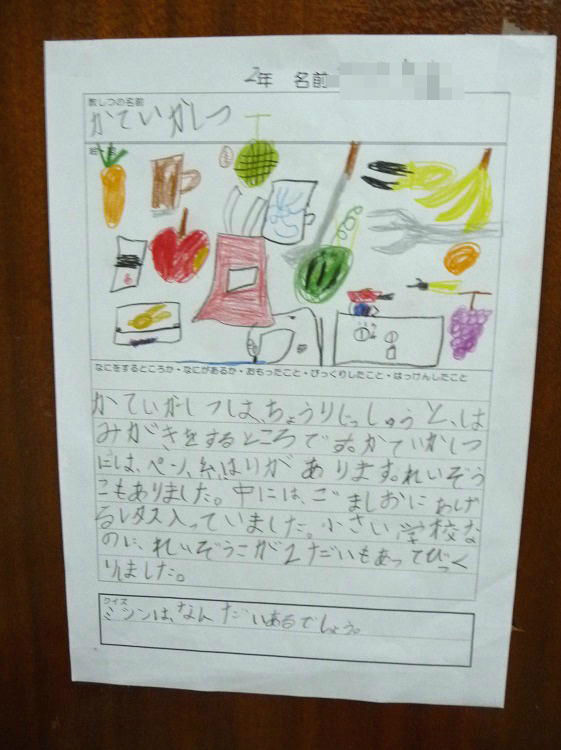 2年 名前
教しつの名前
かていかしつ
なにをするところか・なにがあるか・おもったこと・びっくりしたこと・はっけんしたこと
かていかしつは、ちょうりじっしゅうと、は
みがきをするところです。かていかしつ
には、ペン、糸、はりがあります。れいぞう
こもありました。中には、ごましおに あげ
るレタス入っていました。小さい学校な
のに、れいぞうこが2だいもあってびっく
りしました。
クイズ
ミシンは、なんだいあるでしょう。